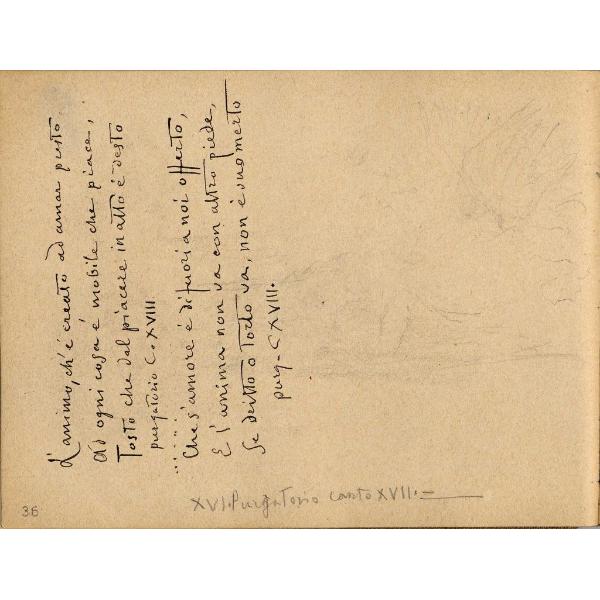 L'animo, ch'è creato ad amar presto
Ad ogni cosa è mobile che piace,
Tosto che dal piacere in atto è desto
purgatorio C. XVIII
......
Che s'amore è di fuori a noi offerto,
E l'anima non va con altro piede,
Se dritto o torto va, non è suo merto
purg- C XVIII.
XVI. Purgatorio canto XVII.-
36